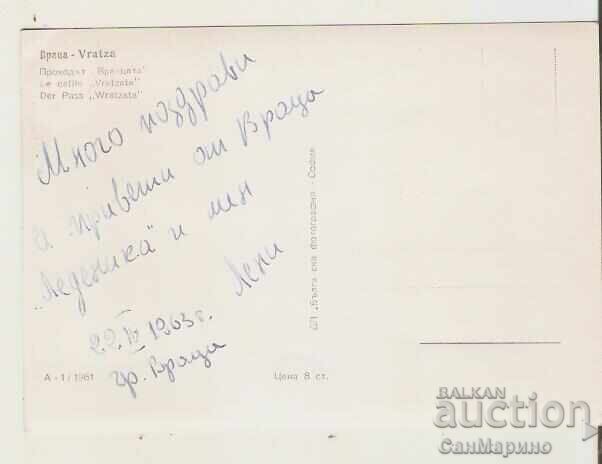 Враца - Vratza
Проходът „Вратцата"
Le défilé „Vratzata"
Der Pass „Wratzata"
Много поздрави
и привети от Враца
„Леденика" и мен
Лени
22.IV 1963 г.
гр. Враца
А - 1 / 1961
Цена 8 ст.
„Българска фотография" - София
BALKAN
auction
СанМарино